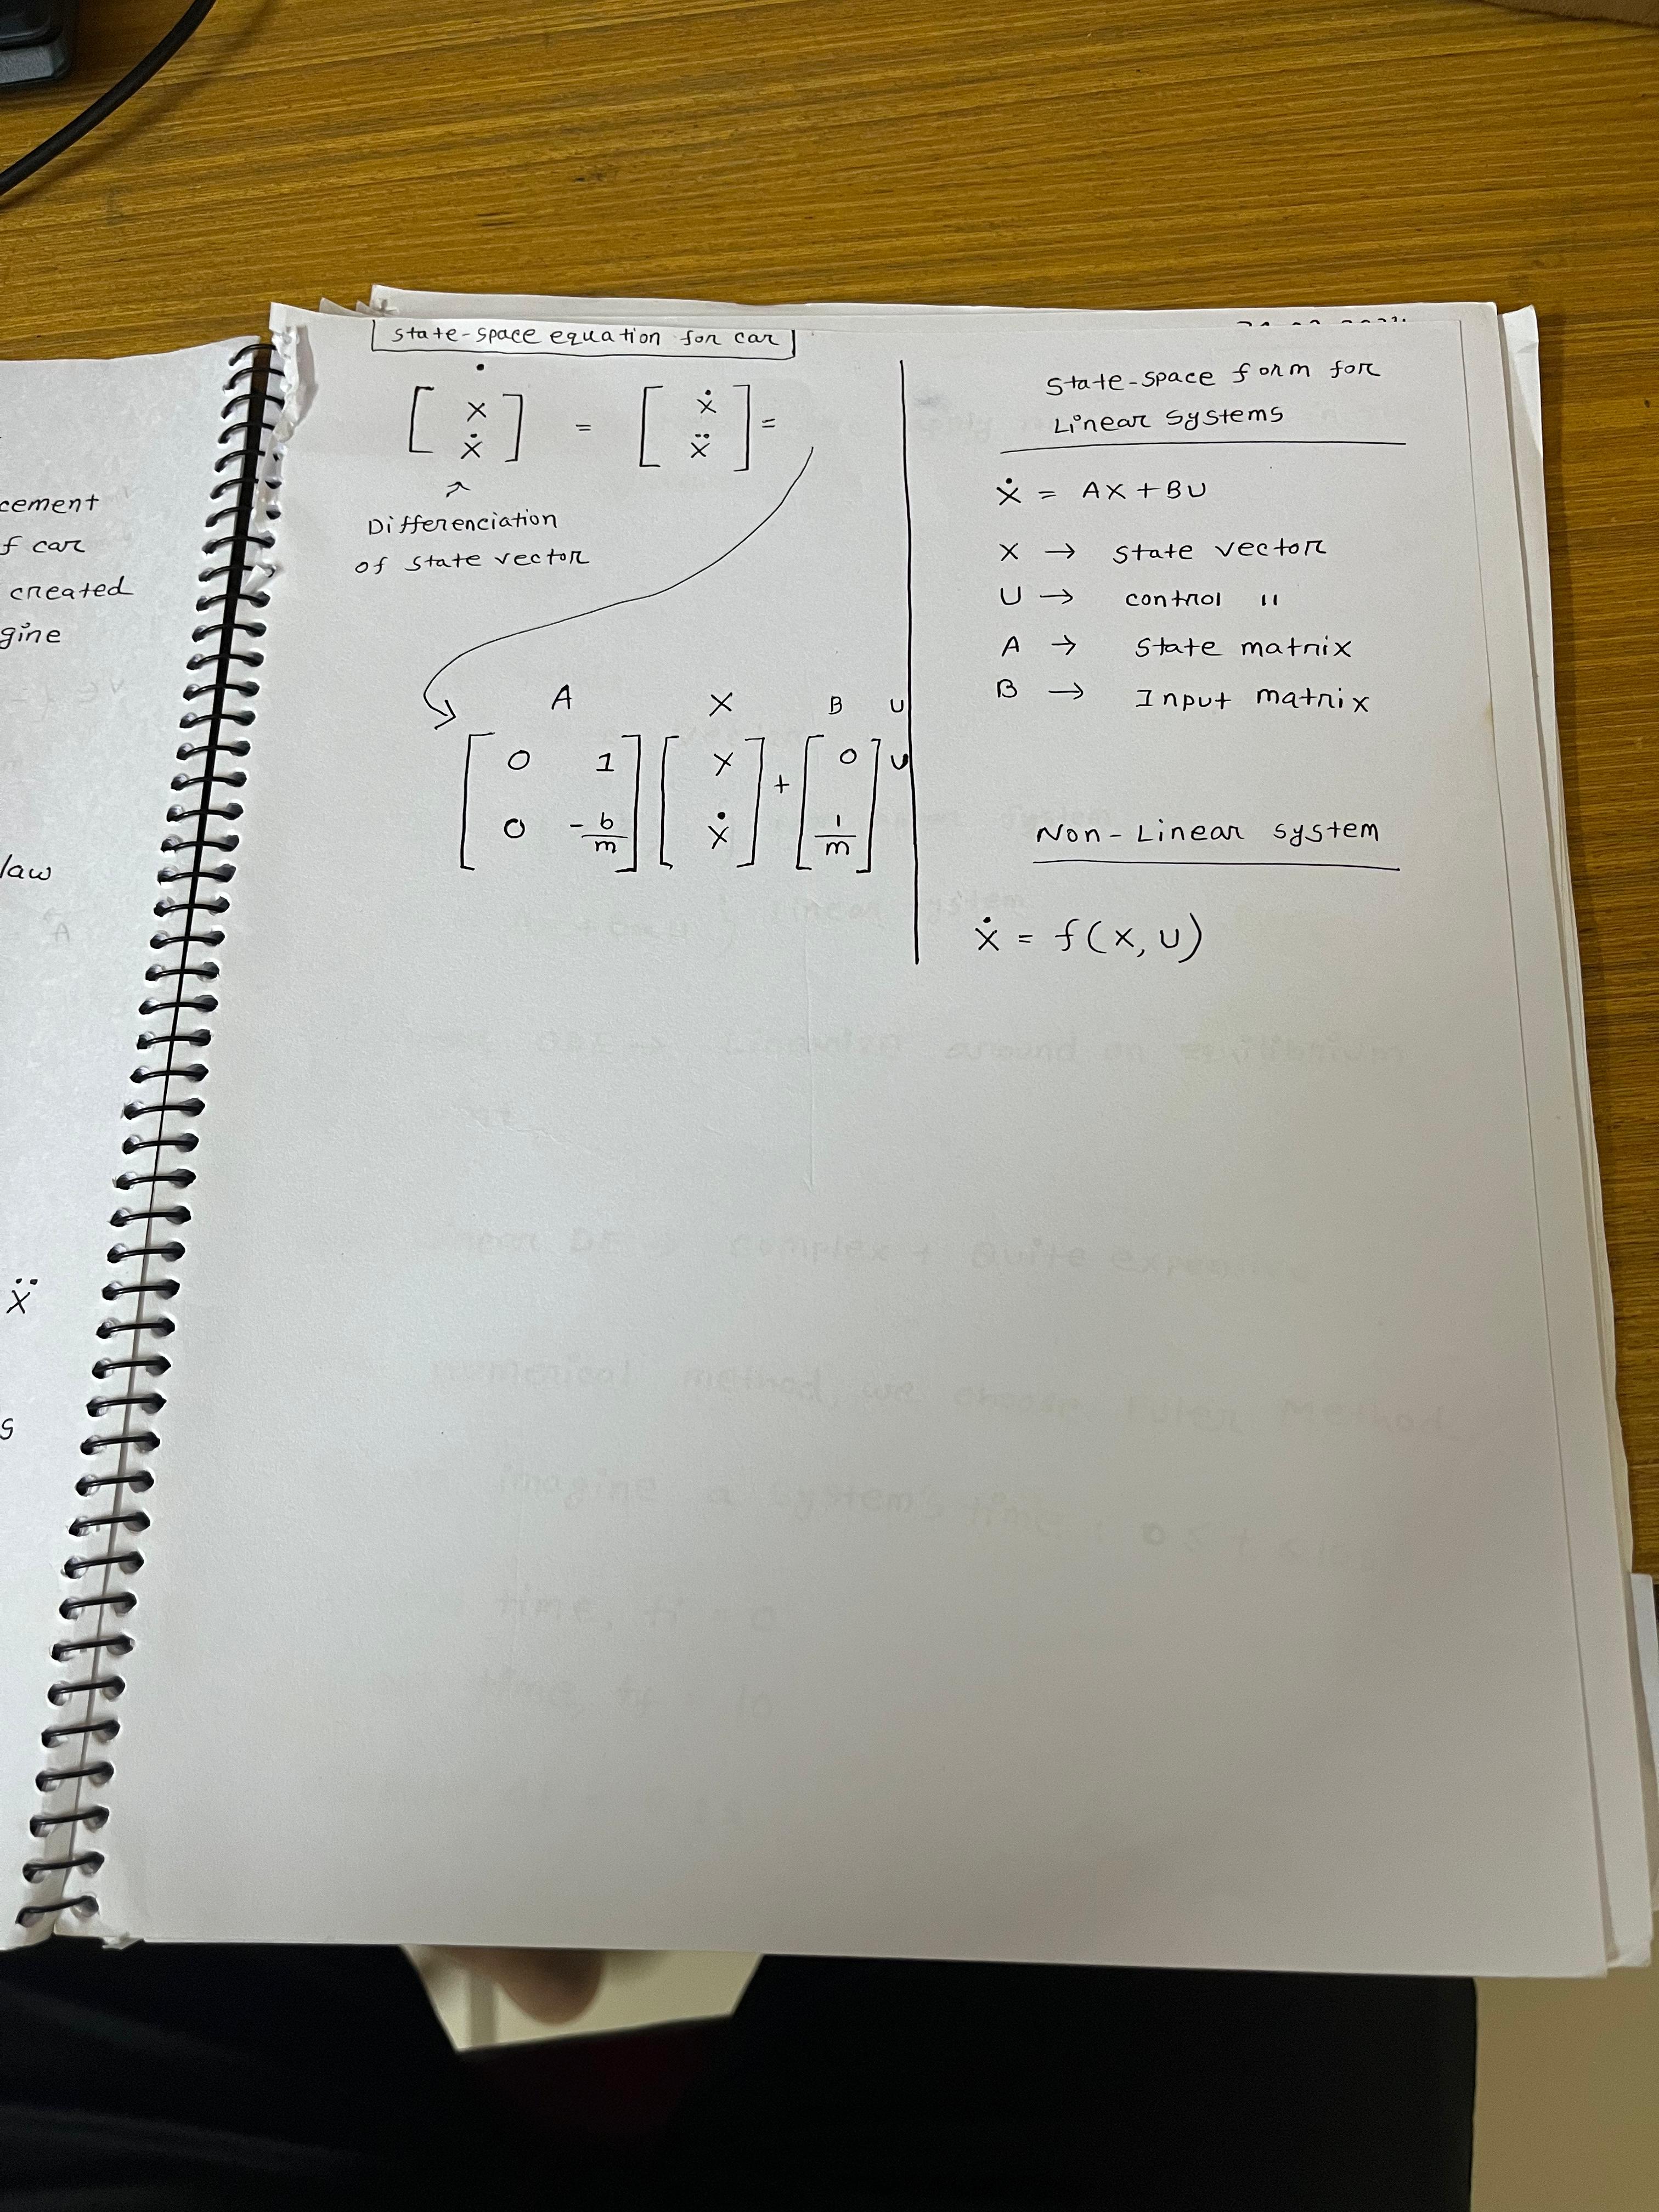 cement
f car
created
gine
law
ẍ
s
state-space equation for car
[ x ẋ ]˙ = [ ẋ ẍ ] =
Differenciation
of state vector
A X B U
[ 0 1 ] [ x ] + [ 0 ] U
[ 0 -b/m ] [ ẋ ] [ 1/m ]
State-space form for
Linear systems
Ẋ = AX + BU
X → state vector
U → control "
A → State matrix
B → Input matrix
Non-Linear system
Ẋ = f(X, U)